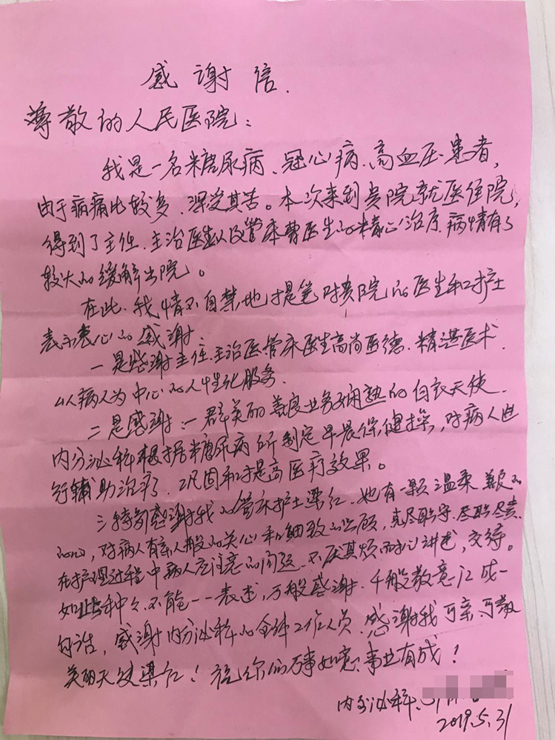 感谢信.
尊敬的人民医院:
我是一名糖尿病、冠心病、高血压患者,
由于病痛比较多、深受其苦。本次来到贵院就医住院,
得到了主任、主治医生以及管床曹医生的精心治疗,病情有了
较大的缓解出院。
在此,我情不自禁地才提笔对贵院的医生和护士
表示衷心的感谢.
一是感谢主任、主治医管床医生高尚医德、精湛医术.
以病人为中心的人性化服务.
二是感谢一群美丽善良业务娴熟的白衣天使.
内分泌科根据糖尿病所制定早晨保健操,对病人进
行辅助治疗、巩固和提高医疗效果。
三特别感谢我的管床护士梁红.她有一颗温柔善良的
的心,对病人有亲人般的关心和细致的照顾,尽职尽责。
在护理过程中病人应注意的问题,不厌其烦的讲述,交待。
如此种种,不能一一表述,万般感谢,千般敬意汇成一
句话,感谢内分泌科的全体工作人员.感谢我可亲、可敬
美丽天使梁红!祝你们万事如意!事业有成!
内分泌科.
2019.5.31